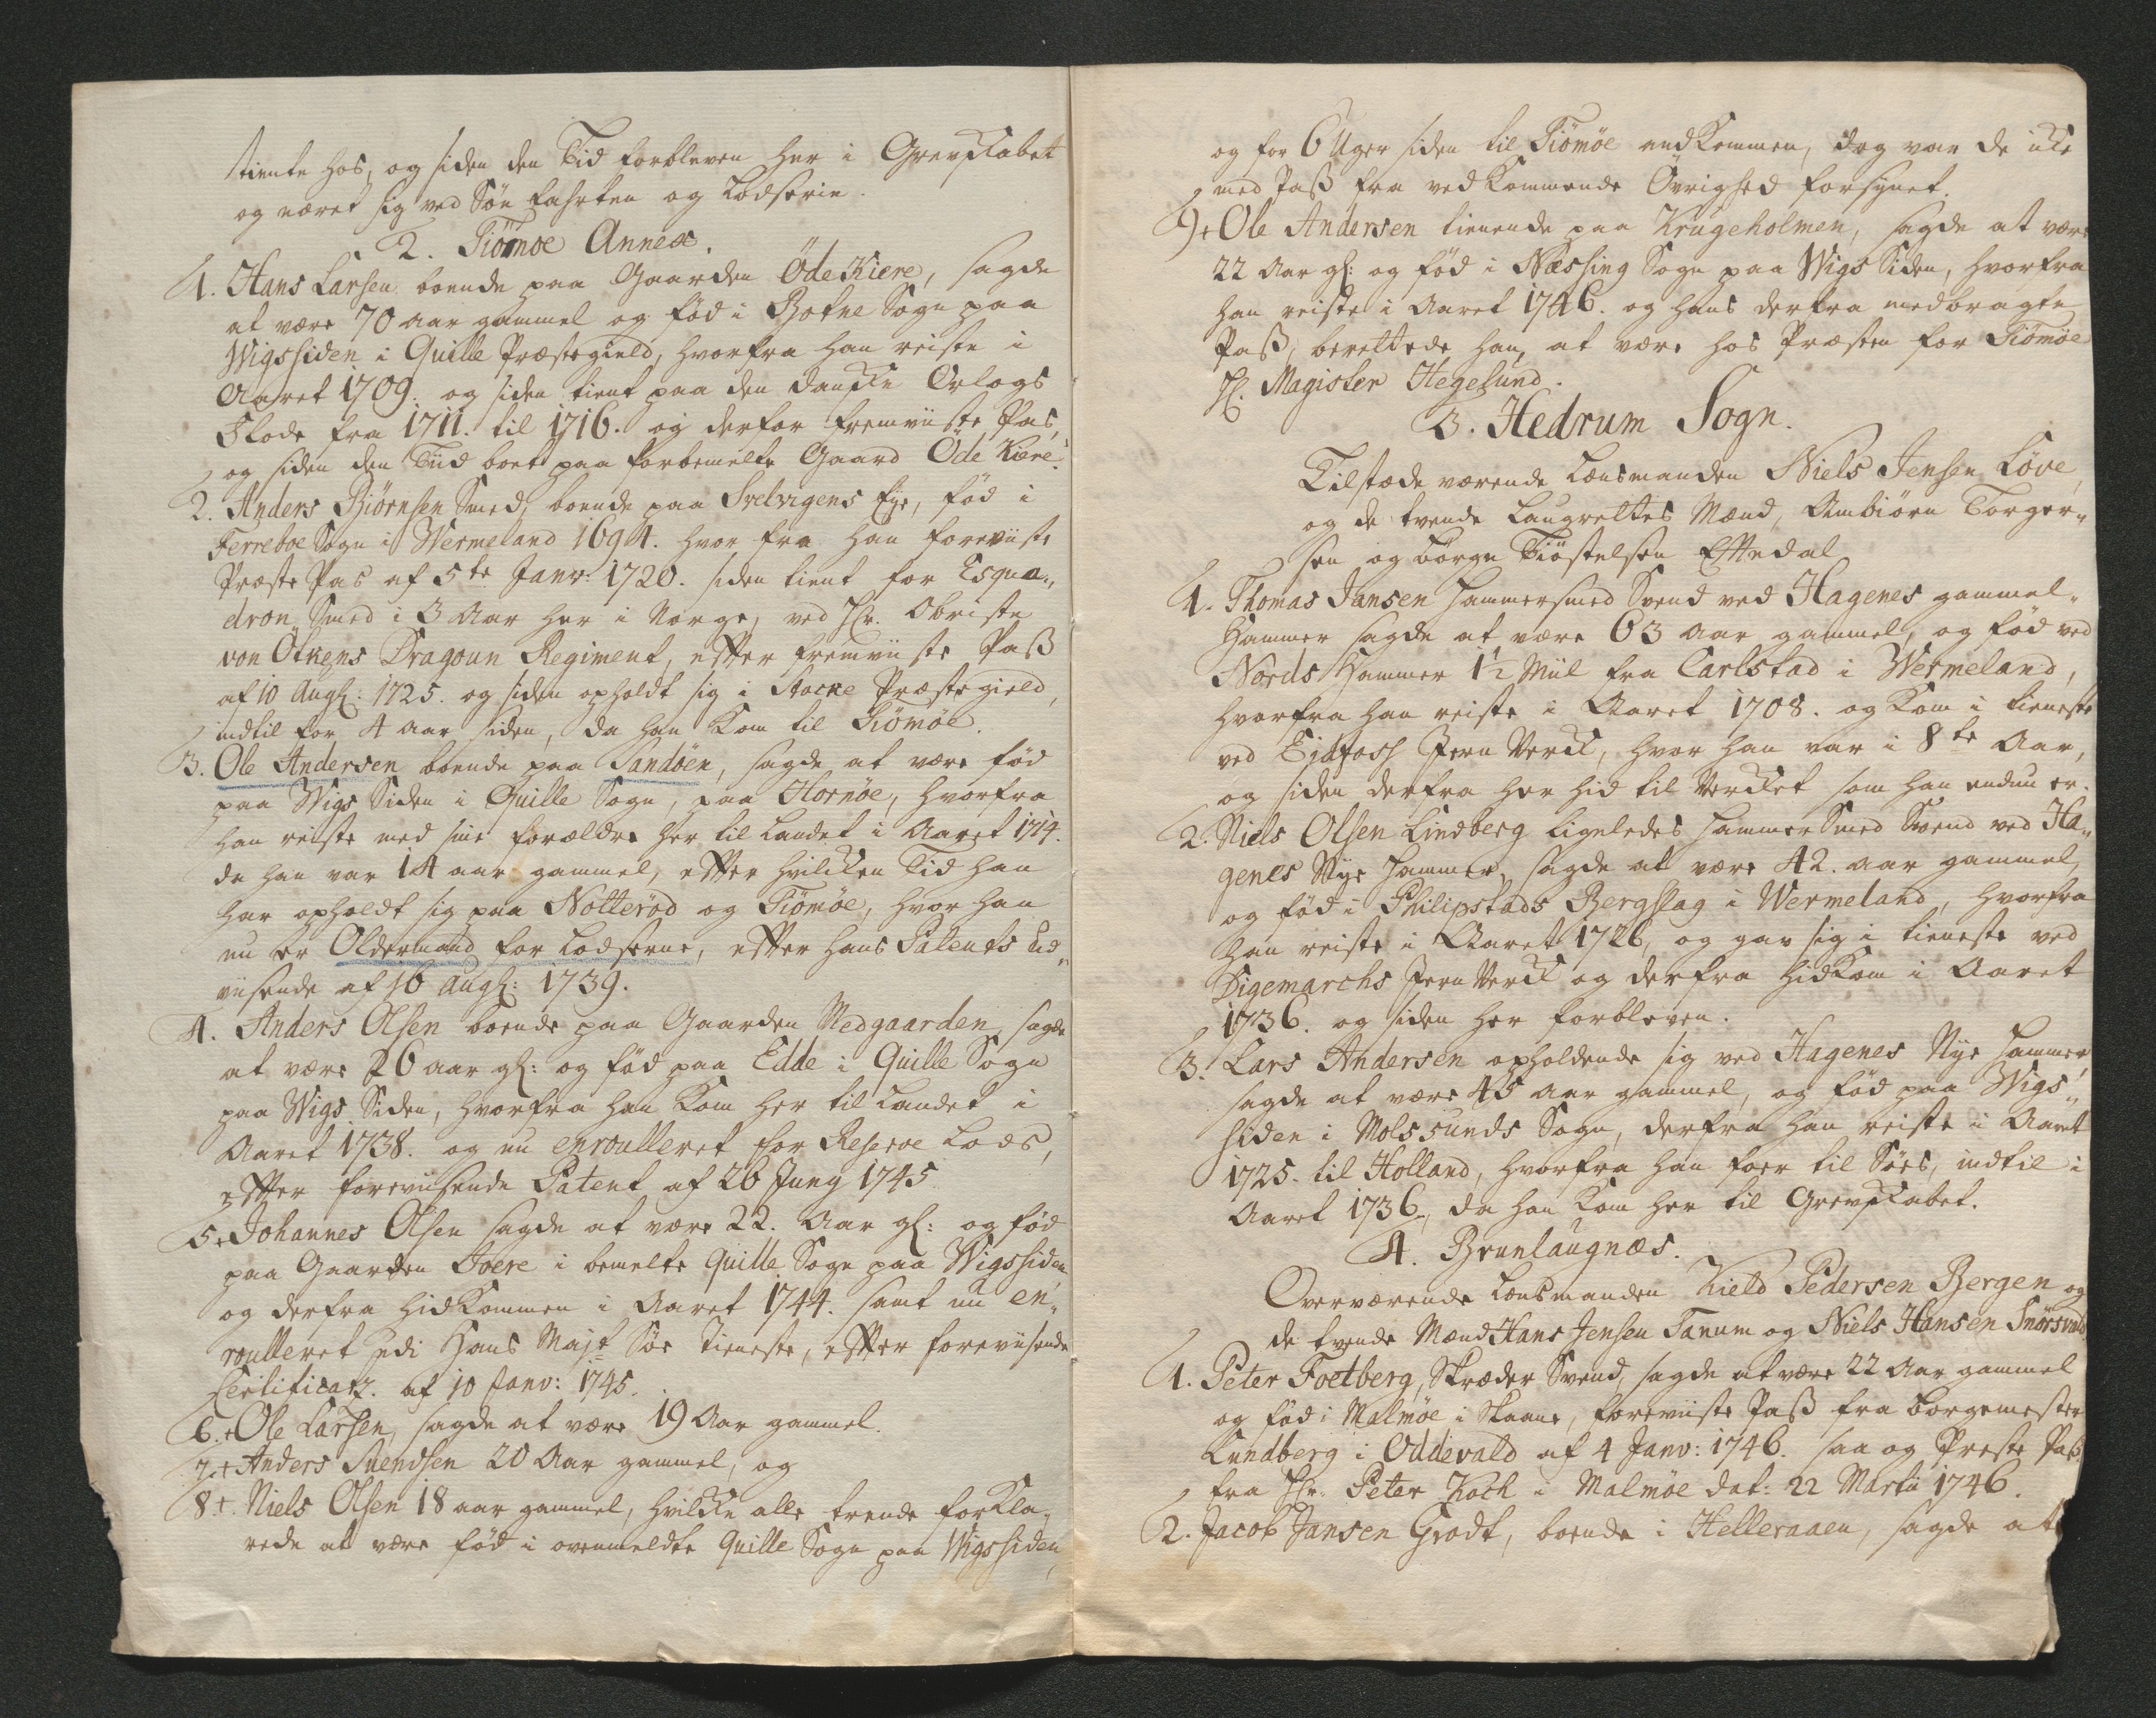 tiente hos, og siden den Tid forbleven her i Grevskabet
og næret sig ved Söe farten og Lodserie.
2. Tiömöe Annex.
1. Hans Larsen boende paa Gaarden Öde Kiere, sagde
at være 70 aar gammel og fød i Botne Sogn paa
Wigssiden i Quille Præstegield, hvorfra han reiste i
Aaret 1709. og siden tient paa den danske Orlogs
Flode fra 1711. til 1716. og derfor fremviiste Pas,
og siden den Tiid boet paa forbemelte Gaard Öde Kiere.
2. Anders Biörnsen Smed, boende paa Svelvigens Eye, fød i
Ferreboe Sogn i Wermeland 1694. hvor fra han foreviiste
Præste Pas af 5te Janv: 1720. siden tient for Esqua„
dron Smed i 3 Aar her i Norge, ved Hr. Obriste
von Ötkens Dragoun Regiment, efter fremviiste Pass
af 10 Augs: 1725. og siden opholdt sig i Stocke Præstegield,
indtil for 4 aar siden, da han kom til Tiömöe.
3. Ole Andersen boende paa Sandöen, sagde at være fød
paa Wigs Siden i Quille Sogn, paa Hornöe, hvorfra
han reiste med sine forældre her til Landet i Aaret 1714.
da han var 14 aar gammel, efter hvilken Tid han
har opholdt sig paa Nötteröd og Tiömöe, hvor han
nu er Oldermand for Lodserne, efter hans Patents Ud„
viisende af 16 Augs: 1739.
4. Anders Olsen boende paa Gaarden Medgaarden, sagde
at være 26 aar gl: og fød paa Edde i Quille Sogn
paa Wigs Siden, hvorfra han kom her til Landet i
Aaret 1738. og nu enroulleret for Reserve Lods,
efter foreviisende Patent af 26 Juny 1745
5.+ Johannes Olsen sagde at være 22. Aar gl: og fød
paa Gaarden Joere i bemelte Quille Sogn paa Wigssiden
og derfra hidkommen i Aaret 1744. samt nu en„
roulleret udi Hans Majt Söe Tieneste, efter foreviisende
Certificatz. af 10 Janv: 1745.
6.+ Ole Larsen, sagde at være 19 Aar gammel.
7.+ Anders Svendsen 20 Aar gammel, og
8+. Niels Olsen 18 aar gammel, hvilke alle trende forkla„
rede at være fød i ovenmeldte Quille Sogn paa Wigssiden,
og for 6 Uger siden til Tiömöe andkommen, dog var de icke
med Pass fra vedkommende Övrighed forsynet.
9+ Ole Andersen tienende paa Krugeholmen, sagde at være
22 Aar gl: og fød i Næssing Sogn paa Wigs Siden, hvorfra
han reiste i Aaret 1746. og hans derfra medbragte
Pass, berettede han, at være hos Præsten for Tiömöe
Hr. Magister Hegelund.
3. Hedrum Sogn.
Tilstæde værende Lensmanden Niels Jensen Löve,
og de tvende Laugrettes Mænd, Ambiörn Torger„
sen og Börge Tiöstelsen Ettedal
1. Thomas Jansen Hammersmed Svend ved Hagenes gammel„
Hammer sagde at være 63 Aar gammel, og fød ved
Nords Hammer 1½ Miil fra Carlstad i Wermeland,
hvorfra han reiste i Aaret 1708. og kom i tieneste
ved Eidfoss Jern Verck, hvor han var i 8te Aar,
og siden derfra her hid til Vercket som han endnu er.
2. Niels Olsen Lindberg ligeledes Hammer Smed Svend ved Ha„
genes Nye Hammer, sagde at være 42. aar gammel,
og fød i Philipstads Bergslag i Wermeland, hvorfra
han reiste i Aaret 1726, og gav sig i tieneste ved
Digemarchs Jern Verck og derfra hidkom i Aaret
1736. og siden her forbleven.
3. Lars Andersen opholdende sig ved Hagenes Nye Hammer,
sagde at være 45 aar gammel, og fød paa Wigs„
siden i Molssunds Sogn, derfra han reiste i Aaret
1725. til Holland, hvorfra han foer til Söes, indtil i
Aaret 1736., da han kom her til Grevskabet.
4. Brunlaugnæs.
Overværende Lensmanden Kield Pedersen Bergen og
de tvende Mænd Hans Jensen Tanum og Niels Hansen Snörsvald.
1. Peter Foetberg, Skræder Svend, sagde at være 22 Aar gammel
og fød i Malmöe i Skaane, foreviiste Pass fra Borgemester
Lundberg i Oddevald af 4 Janv: 1746. saa og Præste Pass
fra Hr. Peter Koch i Malmöe dat: 22 Martii 1746.
2. Jacob Jansen Grodt, boende i Helleraaen, sagde at